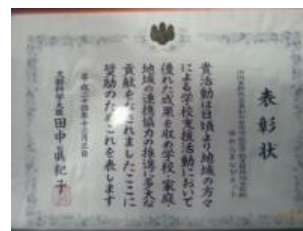 表彰状
貴活動は日頃より地域の方々
による学校支援活動において
優れた成果を収め学校・家庭・
地域の連携協力の推進に多大な
貢献をなされましたここに
奨励のためこれを表します
平成二十四年十二月三日
文部科学大臣 田中眞紀子